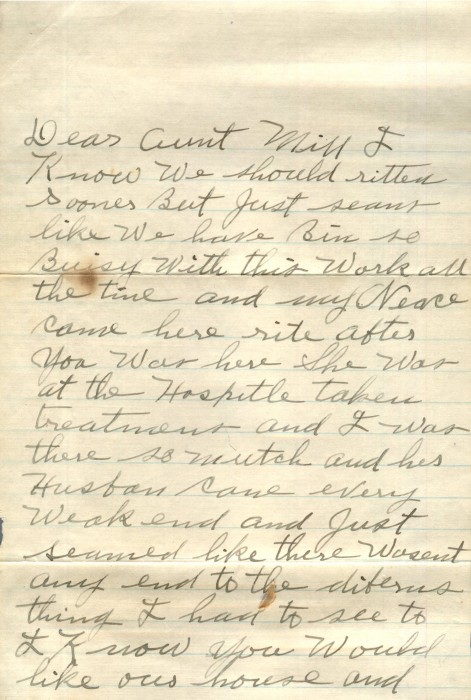 Dear Aunt Mill I
Know We should ritten
sooner But Just seams
like We have Bin so
Buisy With this Work all
the time and my Neace
came here rite after
You Was here She Was
at the Hospitle taken
treatment and I was
there so mutch and her
Husban came every
Weak end and Just
seamed like there Wasent
any end to the diferns
thing I had to see to
I Know you Would
like our house and